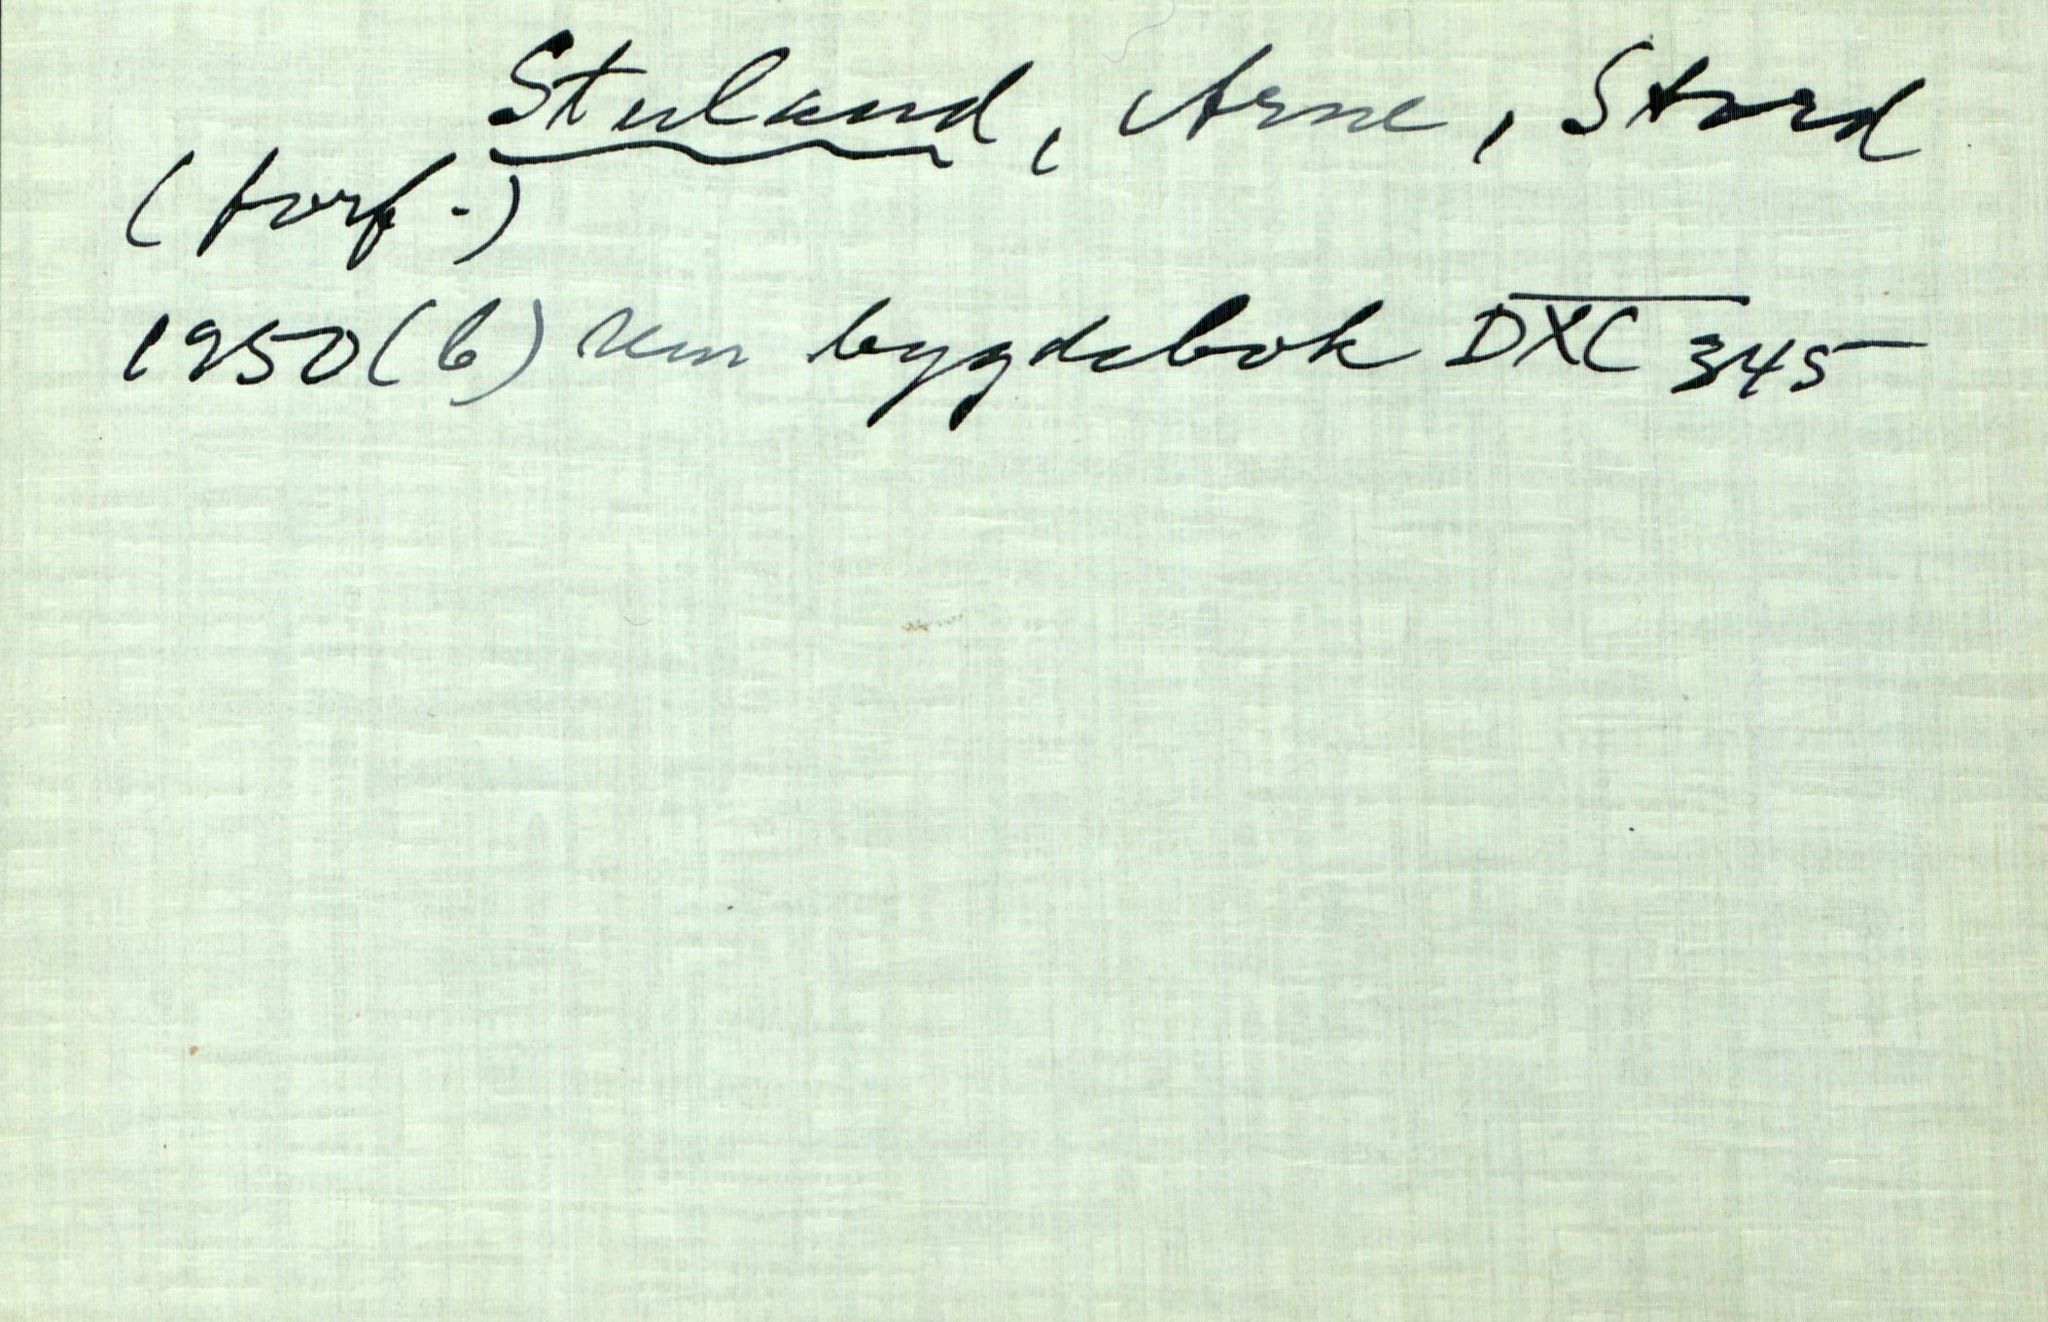 Stuland, Arne, Stord
(forf.)
1950 (b) Um bygdebok DXC 345